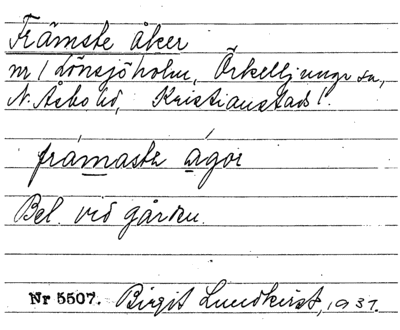 Främste åker
nr 1 Lönsjöholm, Örkelljunga sn,
N. Åsbo hd, Kristianstads l.
främasta ågor
Bel. vid gården.
Nr 5507. Birgit Lundkvist, 1937.